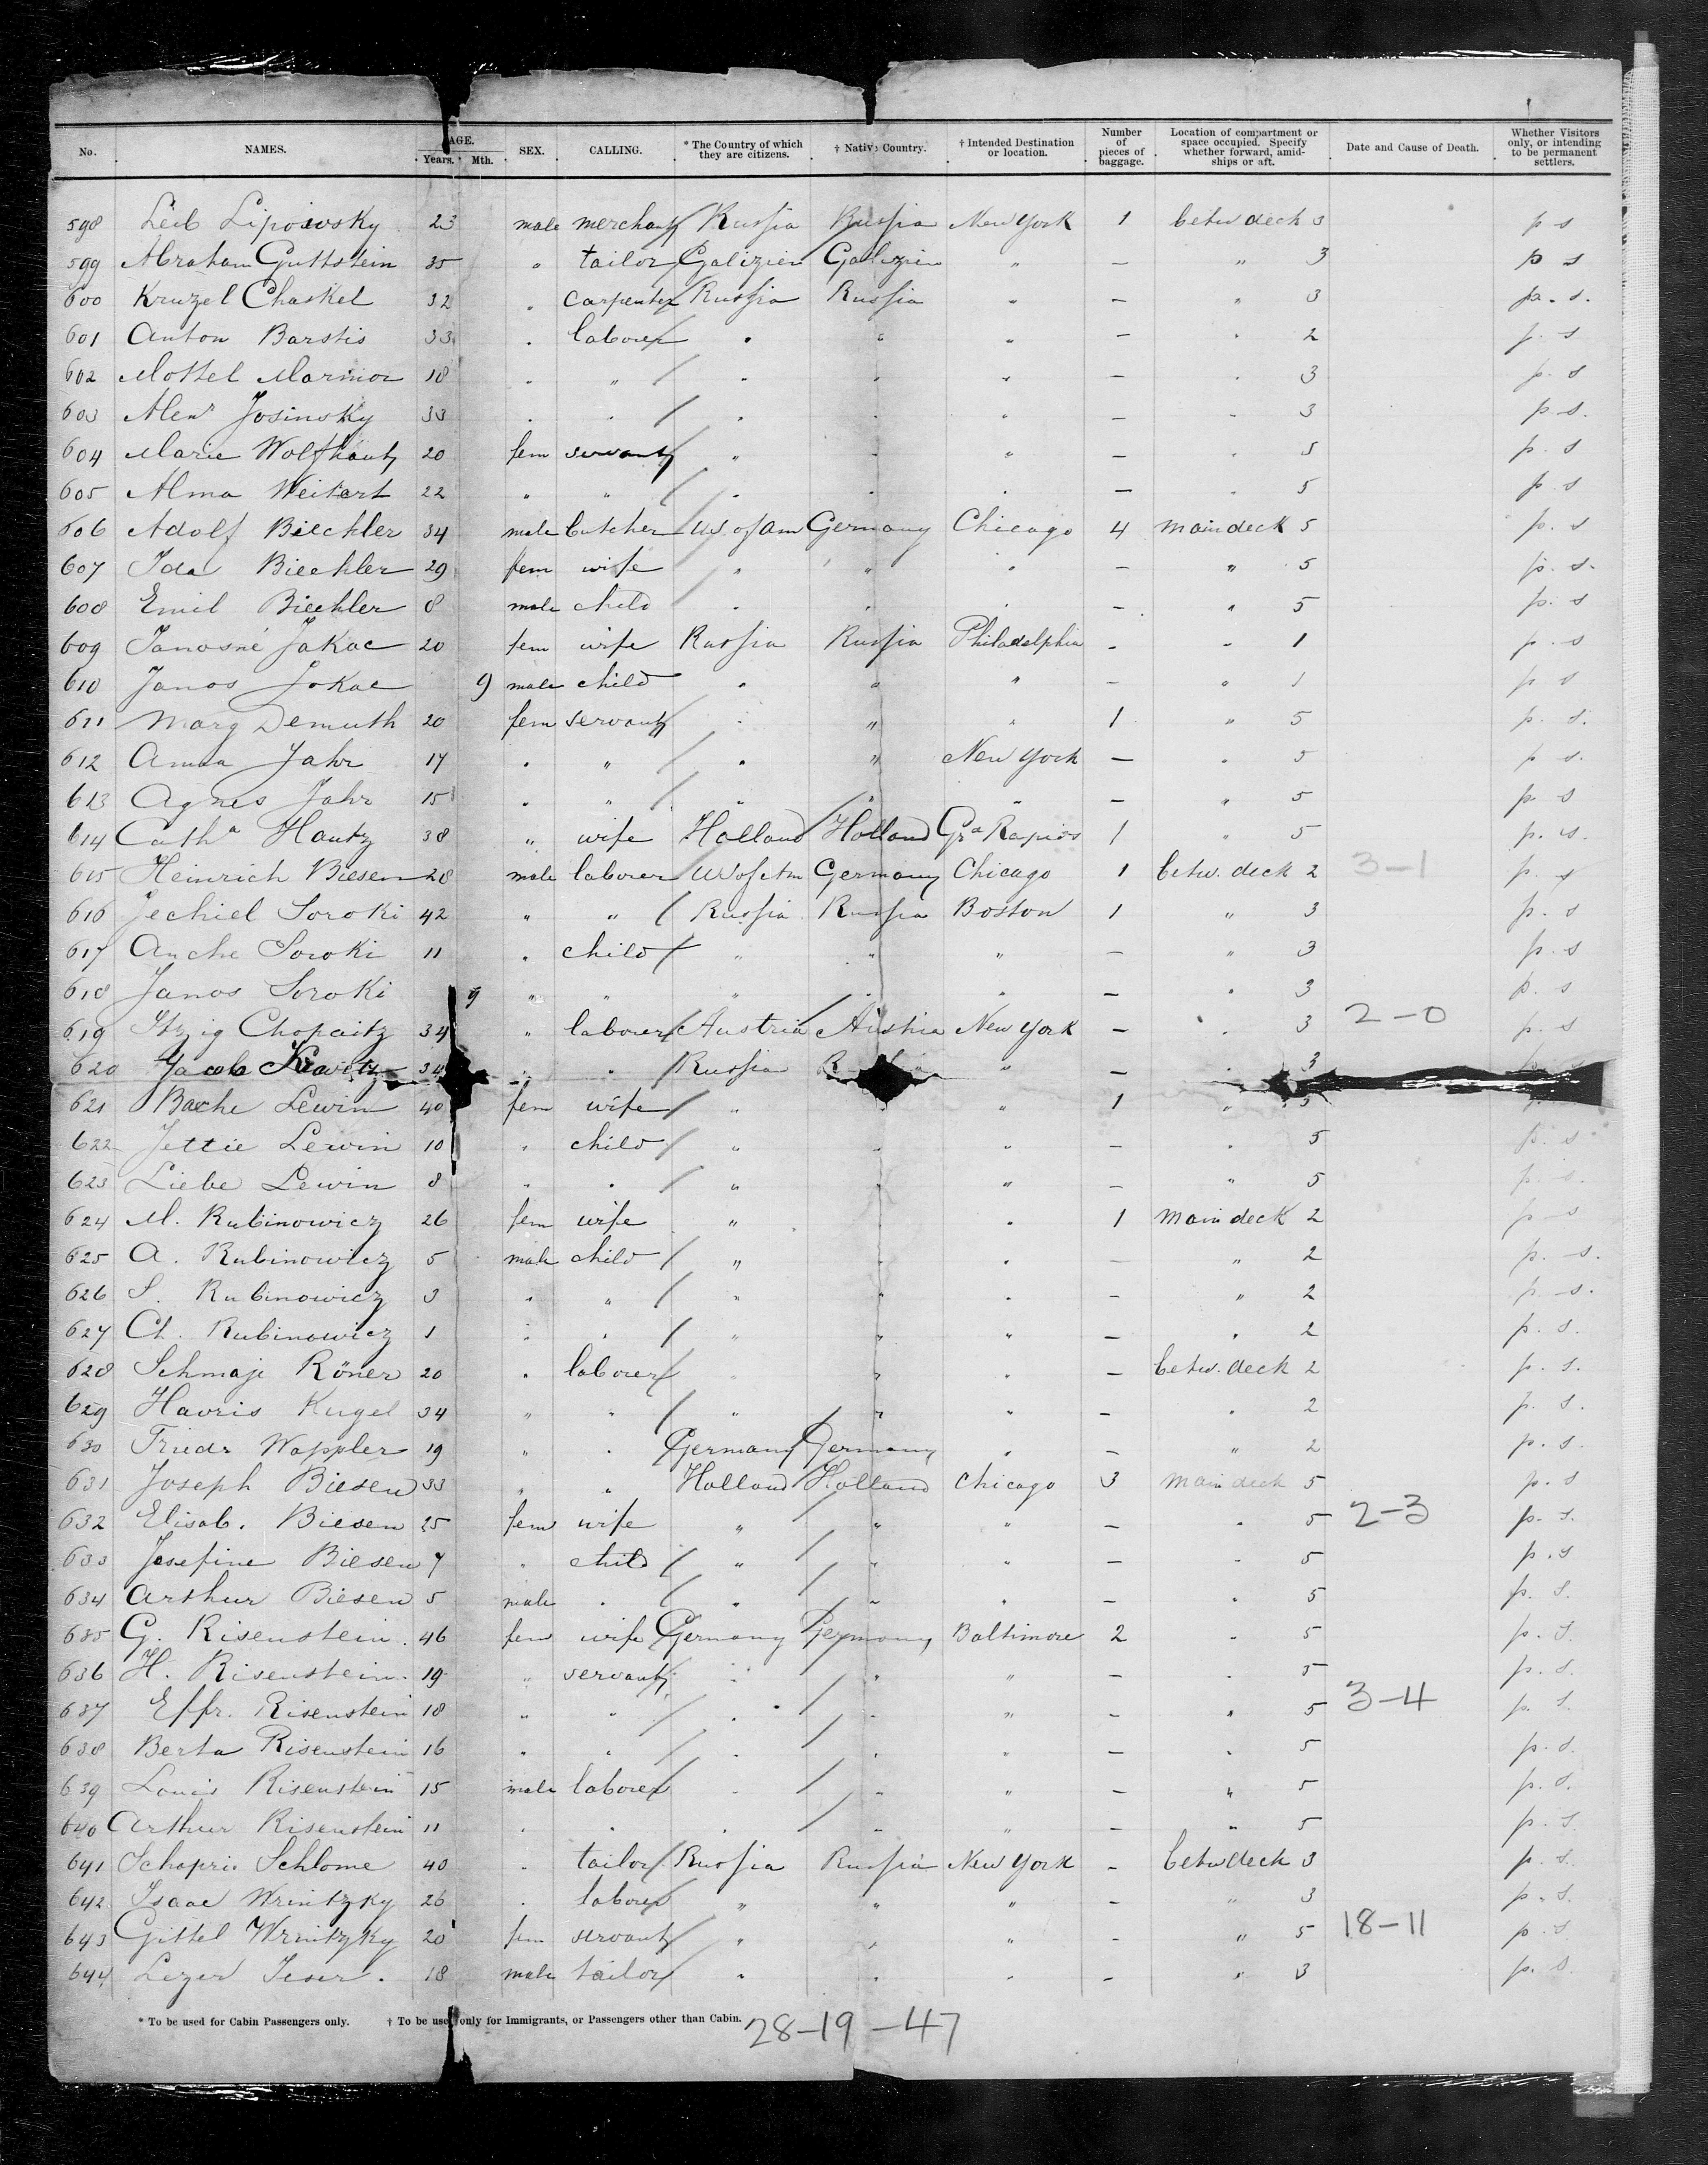 No. NAMES. AGE. Years. Mth. SEX. CALLING. * The Country of which they are citizens. † Native Country. † Intended Destination or location. Number of pieces of baggage. Location of compartment or space occupied. Specify whether forward, amidships or aft. Date and Cause of Death. Whether Visitors only, or intending to be permanent settlers.
598 Leib Lipowsky 23 male merchant Russia Russia New York 1 betw deck 3 p s
599 Abraham Guttstein 35 " tailor Galizien Galizien " — " 3 p s
600 Kruzel Chaskel 32 " carpenter Russia Russia " — " 3 p. s.
601 Anton Barstis 33 " laborer " " " — " 2 p. s
602 Mottel Marmor 18 " " " " " — " 3 p. s
603 Alexr Josinsky 33 " " " " " — " 3 p. s.
604 Marie Wolfhautz 20 fem servant " " " — " 5 p. s
605 Alma Weikert 22 " " " " " — " 5 p. s
606 Adolf Biechler 34 male butcher US of Am Germany Chicago 4 main deck 5 p. s
607 Ida Biechler 29 fem wife " " " — " 5 p. s.
608 Emil Biechler 8 male child " " " — " 5 p. s
609 Janosné Jakac 20 fem wife Russia Russia Philadelphia - " 1 p. s
610 Janos Jokac 9 male child " " " — " 1 p s
611 Marg Demuth 20 fem servant " " " 1 " 5 p. s.
612 Anna Jahr 17 " " " " New York — " 5 p s.
613 Agnes Jahr 15 " " " " " — " 5 p. s
614 Catha Hautz 38 " wife Holland Holland Gra Rapids 1 " 5 p. s.
615 Heinrich Biesen 28 male laborer US of Am Germany Chicago 1 betw. deck 2 3-1 p. s
616 Jechiel Soroki 42 " " Russia Russia Boston 1 " 3 p. s
617 Anche Soroki 11 " child " " " — " 3 p. s
618 Janos Soroki 9 " " " " " — " 3 p. s
619 Itzig Chopaitz 34 " laborer Austria Austria New York — " 3 2-0 p. s
620 Jacob Krawitz 34 " " Russia " — " 3
621 Bache Lewin 40 fem wife " " 1 " 5
622 Jettie Lewin 10 " child " " " — " 5 p. s
623 Liebe Lewin 8 " " " " " — " 5 p. s.
624 M. Rubinowicz 26 fem wife " " 1 main deck 2 p s
625 A. Rubinowicz 5 male child " " " — " 2 p. s.
626 S. Rubinowicz 3 " " " " " — " 2 p. s.
627 Ch. Rubinowicz 1 " " " " " — " 2 p. s.
628 Schmaje Röner 20 " laborer " " " — betw. deck 2 p. s.
629 Havris Kugel 34 " " " " " — " 2 p. s.
630 Friedr Wappler 19 " " Germany Germany " — " 2 p. s.
631 Joseph Biesen 33 " " Holland Holland Chicago 3 main deck 5 p. s
632 Elisab. Biesen 25 fem wife " " " — " 5 2-3 p. s.
633 Josefine Biesen 7 " child " " " — " 5 p. s
634 Arthur Biesen 5 male " " " " — " 5 p. s.
635 G. Risenstein. 46 fem wife Germany Germany Baltimore 2 " 5 p. s.
636 H. Risenstein. 19 " servant " " " — " 5 p. s.
637 Effr. Risenstein 18 " " " " " — " 5 3-4 p. s.
638 Berta Risenstein 16 " " " " " — " 5 p. s.
639 Louis Risenstein 15 male laborer " " " — " 5 p. s.
640 Arthur Risenstein 11 " " " " " — " 5 p. s.
641 Schapri Schlome 40 " tailor Russia Russia New York - betw deck 3 p. s.
642 Isaac Wrintzky 26 " laborer " " " — " 3 p. s.
643 Gittel Wrintzky 20 fem servant " " " - " 5 18-11 p. s
644 Lezer Ieser. 18 male tailor " " " - " 3 p. s.
* To be used for Cabin Passengers only. † To be used only for Immigrants, or Passengers other than Cabin. 28-19-47